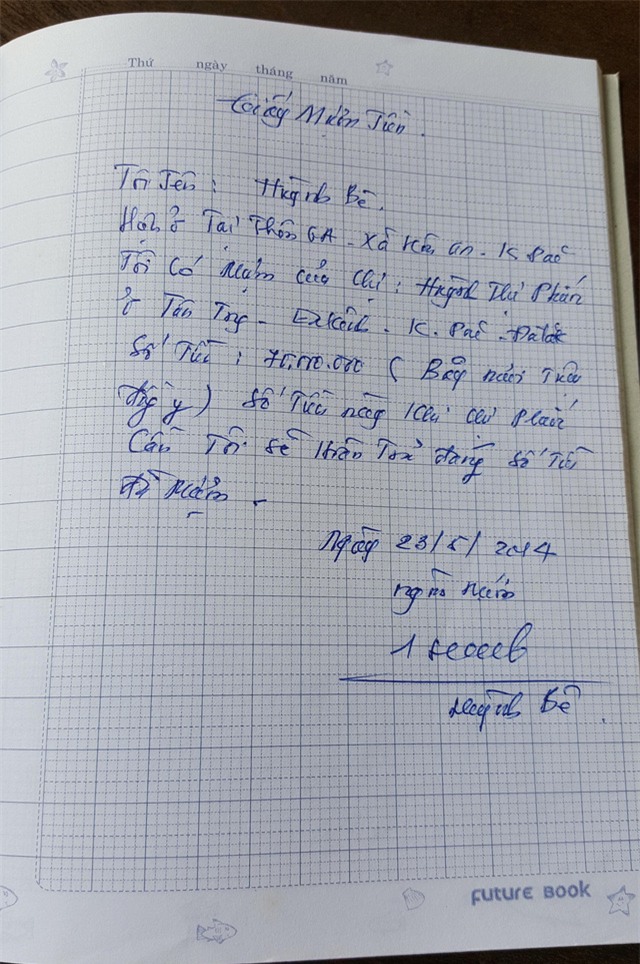 Thứ ngày tháng năm
Giấy Mượn Tiền.
Tôi Tên: Huỳnh Bê.
Hiện ở Tại Thôn 6A - Xã Hòa An - K Pắc
Tôi Có Mượn của Chị: Huỳnh Thị Phấn
ở Tân - K. Pắc - Đalăk
Số Tiền: (Bảy mươi Triệu
đồng y) Số Tiền này Khi Chị Phấn
Cần Tôi sẽ Hoàn Trả đúng Số Tiền
đã Mượn -
Ngày 23/5/2014
người Mượn
Huỳnh Bê
FUTURE BOOK